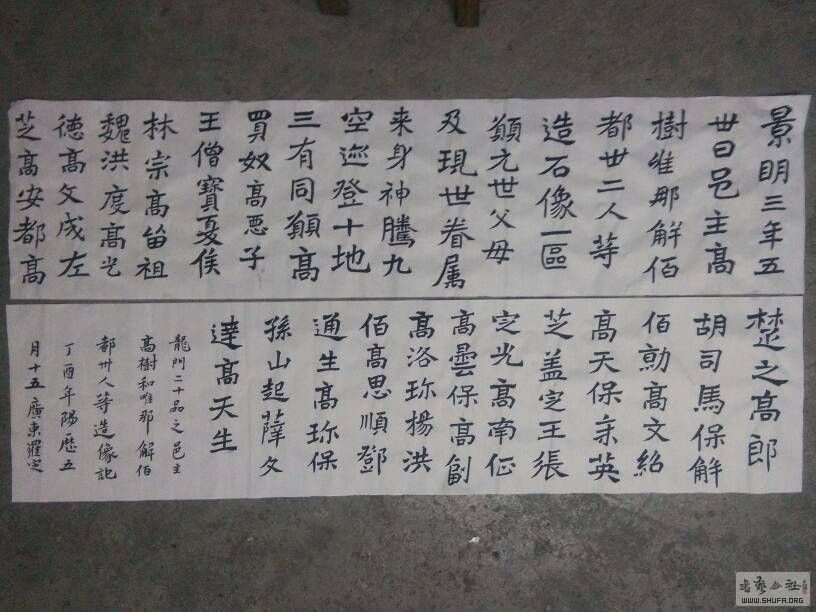 景明三年五
丗日邑主高
樹唯那解佰
都丗二人等
造石像一區
願元世父母
及現世眷属
来身神騰九
空迹登十地
三有同願高
買奴高惡子
王僧寶夏侯
林宗高留祖
魏洪度高光
徳高文成左
芝高安都高
楚之高郎
胡司馬保解
佰勍高文紹
高天保英
芝盖定王張
定光高南征
高曇保高副
高洛珎楊洪
佰高思順鄧
通生高珎保
孫山起薛文
達高天生
龍門二十品之邑主
高樹和唯那解佰
都卅人等造像記
丁酉年陽歷五
月十五廣東羅定
書藝公社
WWW.SHUFA.ORG